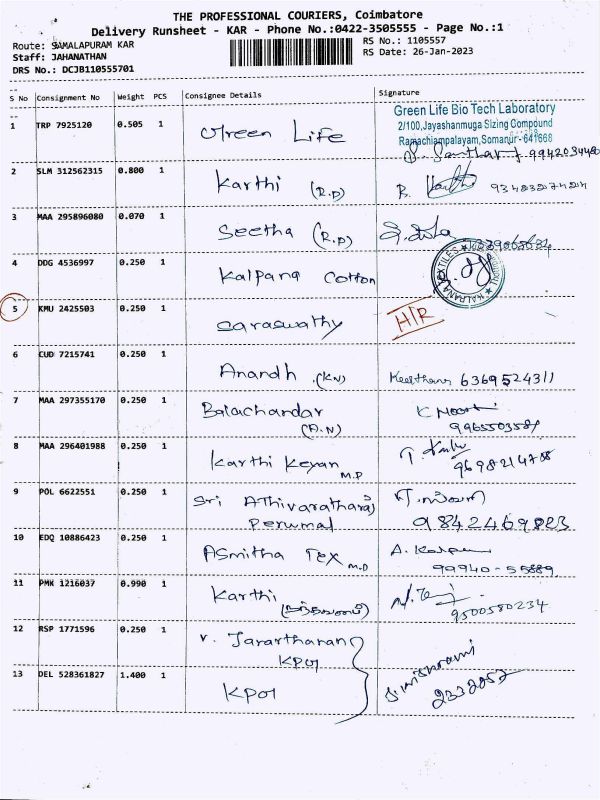 THE PROFESSIONAL COURIERS, Coimbatore
Delivery Runsheet - KAR - Phone No.:0422-3505555 - Page No.:1
Route: SAMALAPURAM KAR
RS No.: 1105557
Staff: JAHANATHAN
RS Date: 26-Jan-2023
DRS No.: DCJB110555701
S No Consignment No Weight PCS Consignee Details Signature
Green Life Bio Tech Laboratory
2/100,Jayashanmuga Sizing Compound
Ramachiampalayam,Somanur-641668
1 TRP 7925120 0.505 1 Green Life
2 SLM 312562315 0.800 1 Karthi (R.P)
3 MAA 295896080 0.070 1 Seetha (R.P)
4 DDG 4536997 0.250 1 Kalpana Cotton
5 KMU 2425503 0.250 1 Saraswathy H/R
6 CUD 7215741 0.250 1 Anandh (KN) 6369524311
7 MAA 297355170 0.250 1 Balachandar
8 MAA 296401988 0.250 1 Karthi Keyan M.P
9 POL 6622551 0.250 1 Sri Athivaratharaj
Perumal
10 EDQ 10886423 0.250 1 Asmitha Tex M.D
99940-55889
11 PMK 1216037 0.990 1 Karthi
9500580234
12 RSP 1771596 0.250 1 V.
KPM
13 DEL 528361827 1.400 1